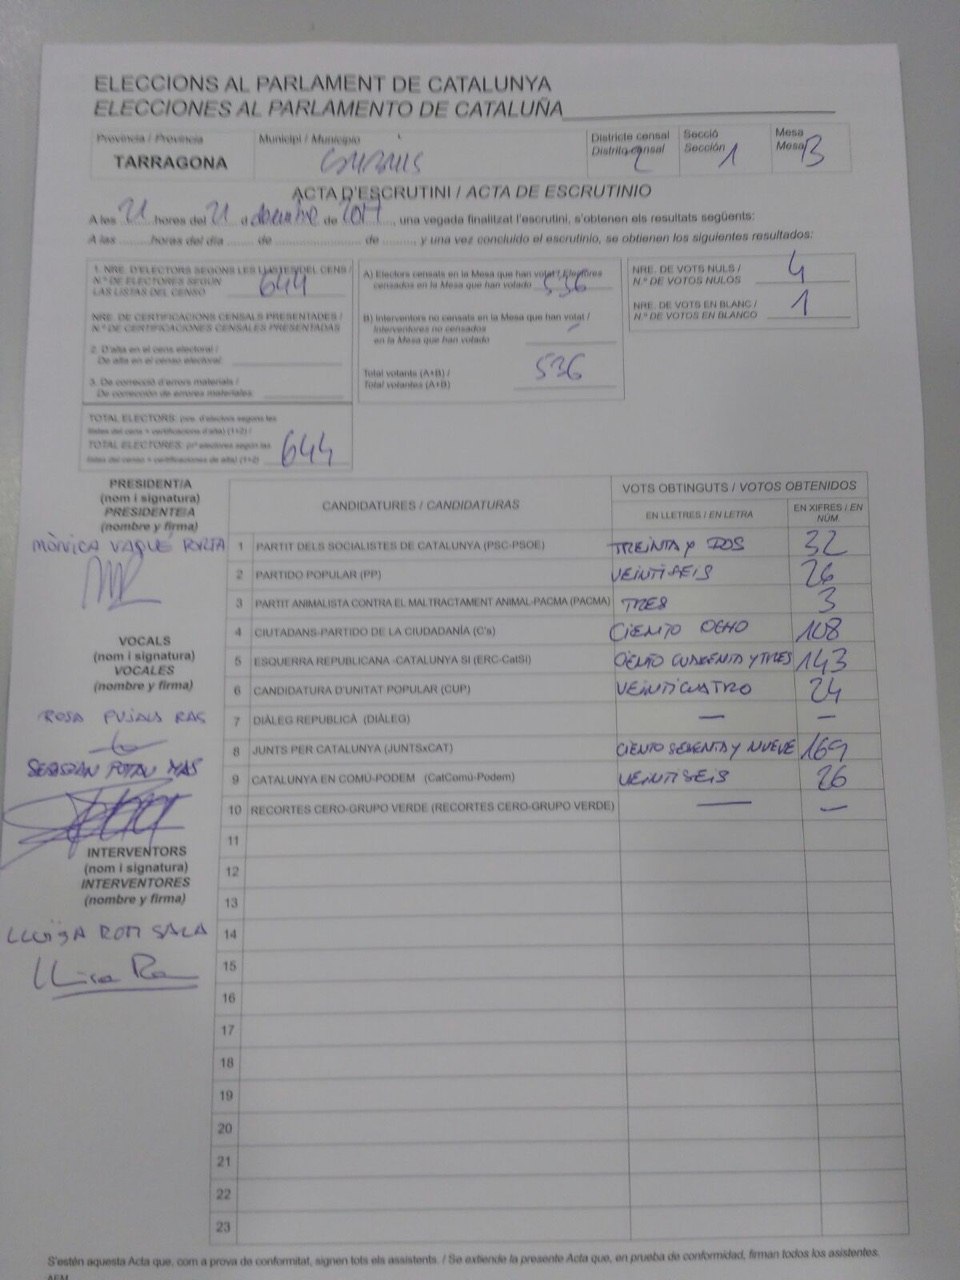 ELECCIONS AL PARLAMENT DE CATALUNYA
ELECCIONES AL PARLAMENTO DE CATALUÑA
Província / Provincia
TARRAGONA
Municipi / Municipio
Districte censal
Distrito censal 2
Secció
Sección 1
Mesa
Mesa B
ACTA D'ESCRUTINI / ACTA DE ESCRUTINIO
A les 21 hores del 21 d desembre de 2017, una vegada finalitzat l'escrutini, s'obtenen els resultats següents:
A las ........ horas del día ....... de ........................ de ........, y una vez concluido el escrutinio, se obtienen los siguientes resultados:
1. NRE. D'ELECTORS SEGONS LES LLISTES DEL CENS /
N.º DE ELECTORES SEGÚN
LAS LISTAS DEL CENSO 644
NRE. DE CERTIFICACIONS CENSALS PRESENTADES /
N.º DE CERTIFICACIONES CENSALES PRESENTADAS
2. D'alta en el cens electoral /
De alta en el censo electoral:
3. De correcció d'errors materials /
De corrección de errores materiales:
TOTAL ELECTORS: (nre. d'electors segons les
llistes del cens + certificacions d'alta) (1+2) /
TOTAL ELECTORES: (nº electores según las
listas del censo + certificaciones de alta) (1+2) 644
A) Electors censats en la Mesa que han votat / Electores
censados en la Mesa que han votado 536
B) Interventors no censats en la Mesa que han votat /
Interventores no censados
en la Mesa que han votado -
Total votants (A+B) /
Total votantes (A+B) 536
NRE. DE VOTS NULS /
N.º DE VOTOS NULOS 4
NRE. DE VOTS EN BLANC /
N.º DE VOTOS EN BLANCO 1
PRESIDENT/A
(nom i signatura)
PRESIDENTE/A
(nombre y firma)
MÒNICA VAQUÉ
VOCALS
(nom i signatura)
VOCALES
(nombre y firma)
ROSA PUJALS
INTERVENTORS
(nom i signatura)
INTERVENTORES
(nombre y firma)
LLUÏSA ROM SALA
CANDIDATURES / CANDIDATURAS
VOTS OBTINGUTS / VOTOS OBTENIDOS
EN LLETRES / EN LETRA
EN XIFRES / EN NÚM.
1 PARTIT DELS SOCIALISTES DE CATALUNYA (PSC-PSOE) TREINTA Y DOS 32
2 PARTIDO POPULAR (PP) VEINTISEIS 26
3 PARTIT ANIMALISTA CONTRA EL MALTRACTAMENT ANIMAL-PACMA (PACMA) TRES 3
4 CIUTADANS-PARTIDO DE LA CIUDADANÍA (C's) CIENTO OCHO 108
5 ESQUERRA REPUBLICANA -CATALUNYA SI (ERC-CatSI) CIENTO CUARENTA Y TRES 143
6 CANDIDATURA D'UNITAT POPULAR (CUP) VEINTICUATRO 24
7 DIÀLEG REPUBLICÀ (DIÀLEG) — —
8 JUNTS PER CATALUNYA (JUNTSxCAT) CIENTO SESENTA Y NUEVE 169
9 CATALUNYA EN COMÚ-PODEM (CatComú-Podem) VEINTISEIS 26
10 RECORTES CERO-GRUPO VERDE (RECORTES CERO-GRUPO VERDE) — —
11
12
13
14
15
16
17
18
19
20
21
22
23
S'estén aquesta Acta que, com a prova de conformitat, signen tots els assistents. / Se extiende la presente Acta que, en prueba de conformidad, firman todos los asistentes.